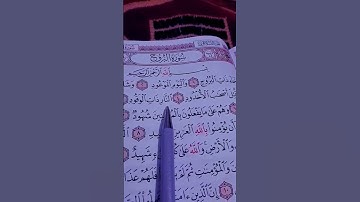 سُورَةُ الْبُرُوجِ
بِسْمِ اللَّهِ الرَّحْمَٰنِ الرَّحِيمِ
ذَاتِ الْبُرُوجِ ١ وَالْيَوْمِ الْمَوْعُودِ ٢ وَشَا
أَصْحَابُ الْأُخْدُودِ ٤ النَّارِ ذَاتِ الْوَقُودِ
وَهُمْ عَلَىٰ مَا يَفْعَلُونَ بِالْمُؤْمِنِينَ شُهُودٌ ٧
أَن يُؤْمِنُوا بِاللَّهِ الْعَزِيزِ
وَالْأَرْضِ وَاللَّهُ عَلَىٰ كُلِّ شَيْءٍ شَهِيدٌ ٩
وَالْمُؤْمِنَاتِ ثُمَّ لَمْ فَلَهُمْ عَذَا
إِنَّ الَّذِينَ ءَامَنُوا